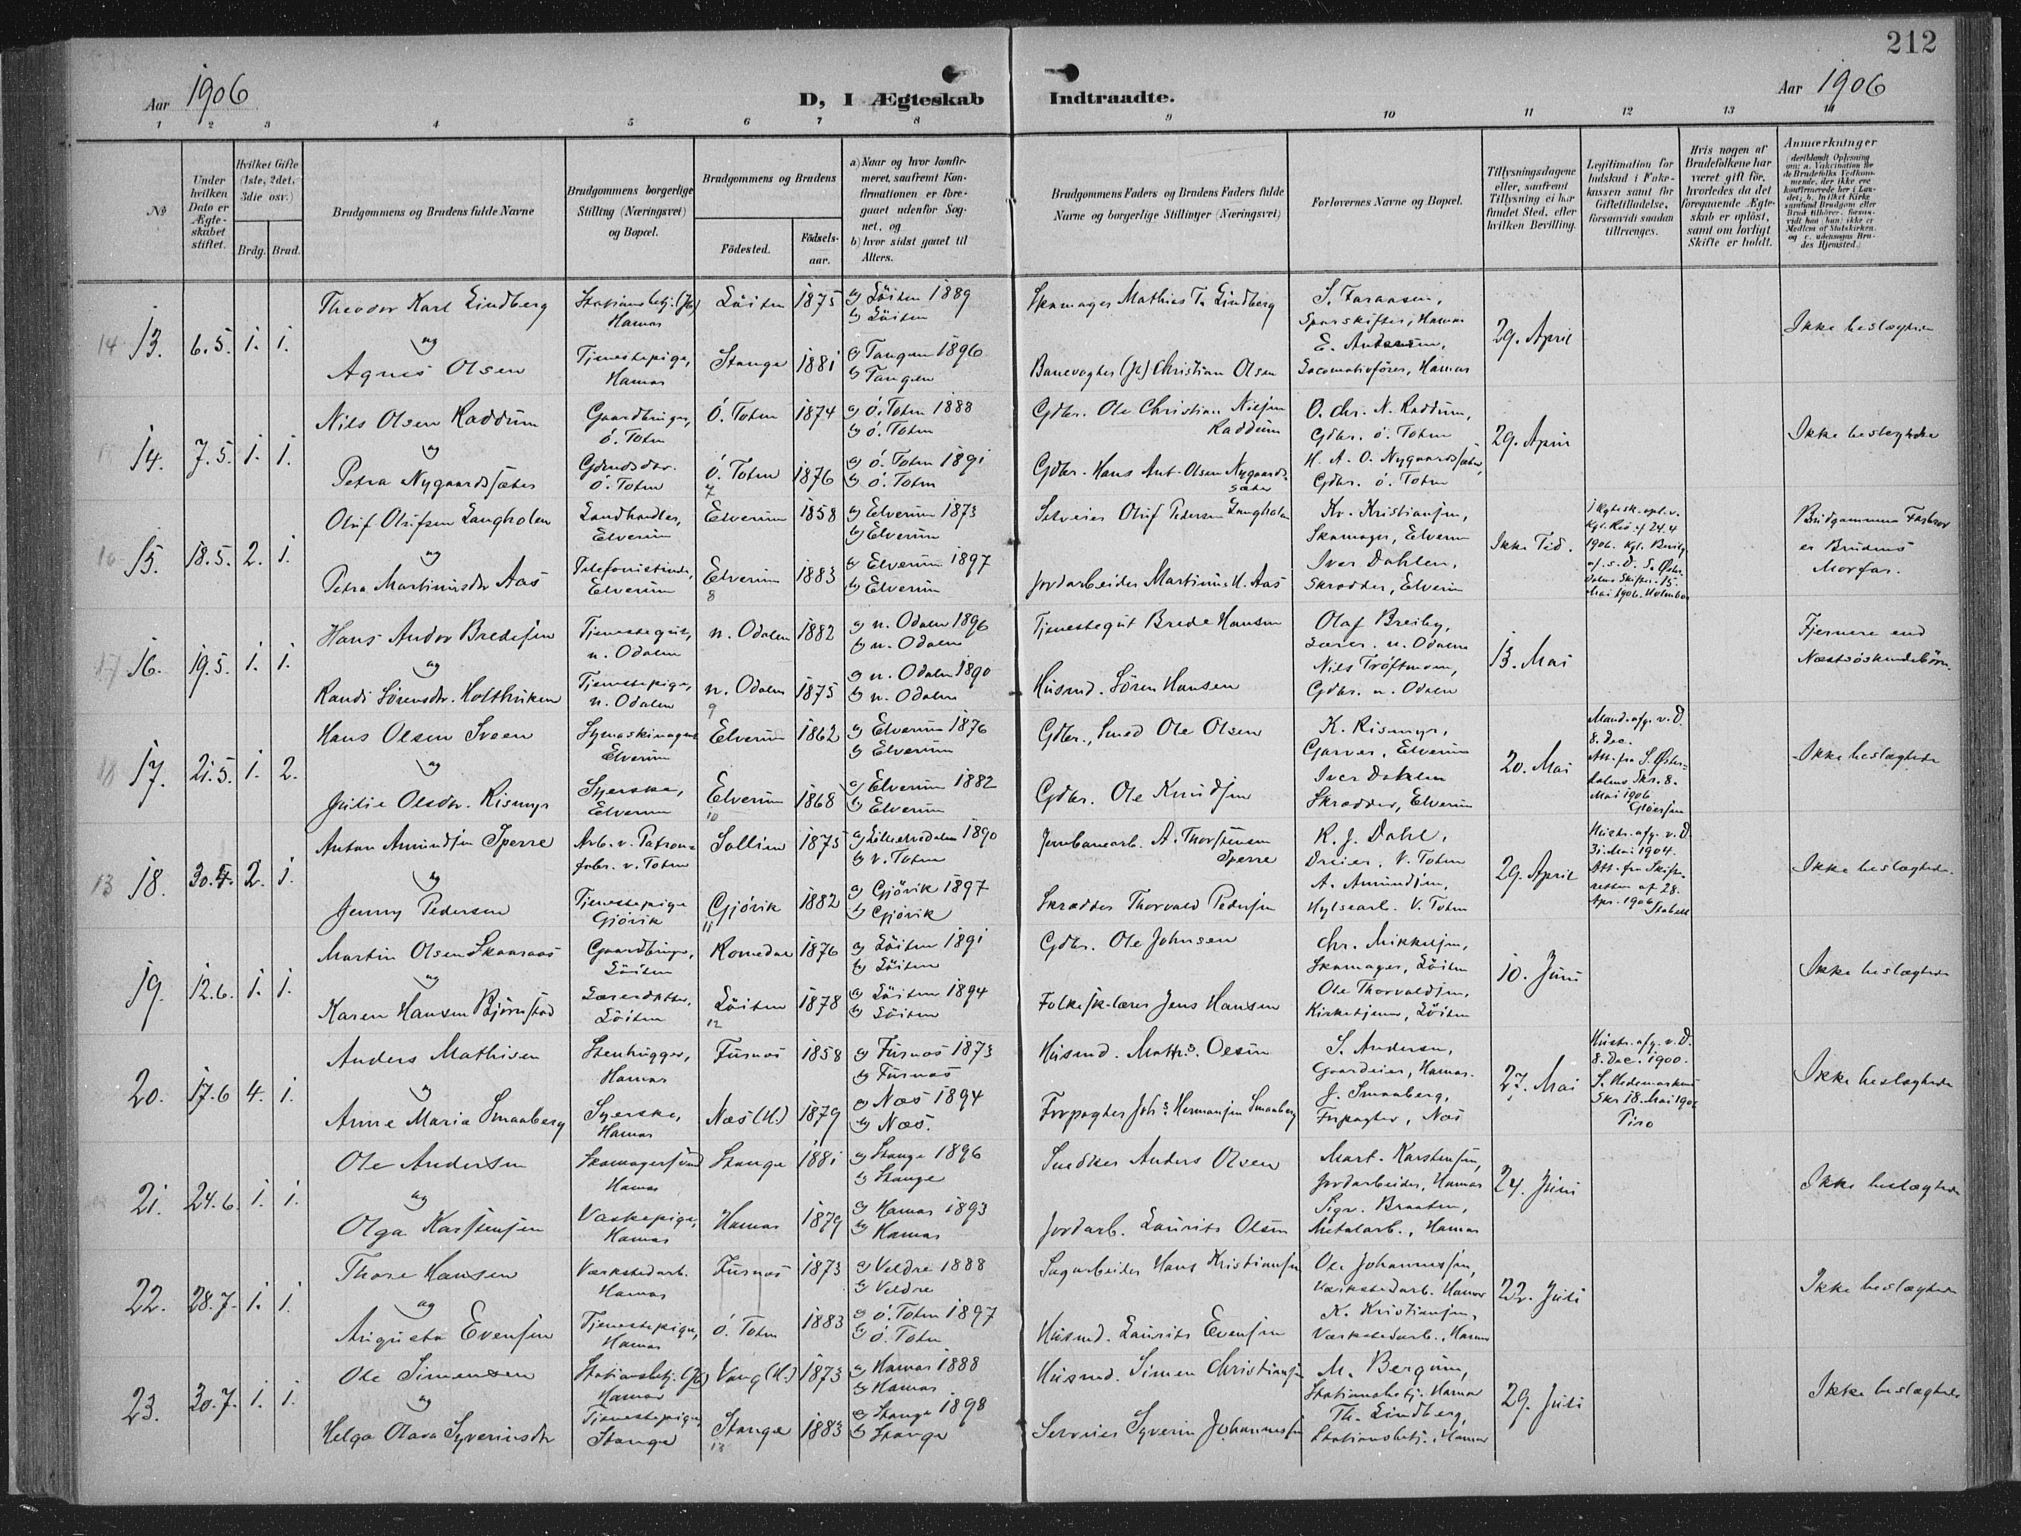 212
Aar 1906
D, I Ægteskab Indtraadte.
Aar 1906
1 2 3 4 5 6 7 8 9 10 11 12 13 14
No
Under hvilken Dato er Ægteskabet stiftet.
Hvilket Gifte (1ste, 2det, 3die osv.)
Brdg. Brud.
Brudgommens og Brudens fulde Navne
Brudgommens borgerlige Stilling (Næringsvei) og Bopæl.
Brudgommens og Brudens
Födested.
Födselsaar.
a) Naar og hvor konfirmeret, saafremt Konfirmationen er foregaaet udenfor Sognet, og
b) hvor sidst gaaet til Alters.
Brudgommens Faders og Brudens Faders fulde Navne og borgerlige Stillinger (Næringsvei)
Forlovernes Navne og Bopæl.
Tillysningsdagene eller, saafremt Tillysning ei har fundet Sted, efter hvilken Bevilling.
Legitimation for Indskud i Enkekassen samt for Giftetilladelse, forsaavidt saadan tiltrænges.
Hvis nogen af Brudefolkene har været gift för, hvorledes da det foregaaende Ægteskab er oplöst, samt om lovligt Skifte er holdt.
Anmærkninger
14 13. 6.5. 1. 1. Theodor Karl Lindberg Stationsbetj. (Jb) Hamar Löiten 1875 a) Löiten 1889 b) Löiten Skomager Mathias T. Lindberg
Sporskifter, Hamar 29. April Ikke beslægtede
og
Agnes Olsen Tjenestepige, Hamar Stange 1881 a) Tangen 1896 b) Tangen Banevogter (Jb) Christian Olsen Locomotivförer, Hamar
14. 7.5. 1. 1. Nils Olsen Raddum Gaardbruger, Ö. Toten Ö. Toten 1874 a) Ö. Toten 1888 b) Ö. Toten Gdbr. Ole Christian Nilsen Raddum O. Chr. N. Raddum, Gdbr. Ö. Toten 29. April Ikke beslegtede
og
Petra Nygaardssæter Gdmdsdtr. Ö. Toten Ö. Toten 7 1876 a) Ö. Toten 1891 b) Ö. Toten Gdbr. Hans Ant. Olsen Nygaardssæter H. A. O. Nygaardssæter, Gdbr. Ö. Toten
16 15. 18.5. 2. 1. Oluf Olufsen Langholen Landhandler, Elverum Elverum 1858 a) Elverum 1873 b) Elverum Selveier Oluf Pedersen Langholen Kr. Kristiansen, Skomager, Elverum Ikke Tid. Brudgommens Farbror er Brudens Morfar.
og
Petra Martinusdtr Aas Elverum Elverum 8 1883 a) Elverum 1897 b) Elverum Jordarbeider Martinus H. Aas Iver Dahlen, Skrædder, Elverum
17 16. 19.5. 1. 1. Hans Andor Bredesen Tjenestegut, n. Odalen n. Odalen 1882 a) n. Odalen 1896 b) n. Odalen Tjenestegut Brede Hansen Olaf Breiby, Lærer. n. Odalen 13. Mai Fjernere end Næstsöskendebörn
og
Randi Sörensdtr. Holtbriken Tjenestepige, n. Odalen n. Odalen 9 1875 a) n. Odalen 1890 b) n. Odalen Husmd. Sören Hansen Nils Tröftmoen, Gdbr. n. Odalen
18 17. 21.5. 1. 2. Hans Olsen Sveen Symaskinagent Elverum Elverum 1862 a) Elverum 1876 b) Elverum Gdbr., Smed Ole Olsen K. Rismyr, Garver, Elverum 20. Mai Mand. afg. v. D. 8. Dec. Att. fra S. Österdalens Skr. 8. Mai 1906. Ikke beslægtede
og
Julie Olsdtr. Rismyr Syerske, Elverum Elverum 10 1868 a) Elverum 1882 b) Elverum Gdbr. Ole Knudsen Iver Dahlen Skrædder, Elverum
13 18. 30.4. 2. 1. Anton Amundsen Sperre Arb. v. Patronfabr. v. Toten Sollien 1875 a) 1890 b) v. Toten Jernbanearb. A. Thorstensen Sperre K. J. Dahl, Dreier, V. Toten 29. April Hustr. afg. v. D. 31. Mai 1904. Att. fra Skifteretten af 28. Apr. 1906 Stabell Ikke beslægtede
og
Jenny Pedersen Tjenestepige Gjövik Gjövik 11 1882 a) Gjövik 1897 b) Gjövik Skrædder Thorvald Pedersen A. Amundsen, Hylsearb. V. Toten
19. 12.6. 1. 1. Martin Olsen Skaaraas Gaardbruger, Löiten Romedal 1876 a) Löiten 1891 b) Löiten Gdbr. Ole Johnsen Chr. Mikkelsen, Skomager, Löiten 10. Juni Ikke beslægtede
og
Karen Hansen Björnstad Lærerdatter, Löiten Löiten 12 1878 a) Löiten 1894 b) Löiten Folkesk.lærer Jens Hansen Ole Thorvaldsen, Kirketjener, Löiten
20. 17.6 4. 1. Anders Mathisen Stenhugger, Hamar Furnæs 1858 a) Furnæs 1873 b) Furnæs Husmd. Maths. Olsen S. Andersen, Gaardeier, Hamar. 27. Mai Hustr. afg. v. D. 8. Dec. 1900. S. Hedemarkens Skr 18. Mai 1906 Piro Ikke beslægtede
og
Anne Maria Smaaberg Syerske, Hamar Næs (H.) 1879 a) Næs 1894 b) Næs. Forpagter Johs Hermansen Smaaberg J. Smaaberg, Forpagter, Næs
21. 24.6. 1. 1. Ole Andersen Skomagersvend Hamar Stange 1881 a) Stange 1896 b) Stange Snedker Anders Olsen Mart. Karstensen, Jordarbeider, Hamar 24. Juni Ikke beslægtede
og
Olga Karstensen Vaskepige, Hamar Hamar 1879 a) Hamar 1893 b) Hamar Jordarb. Laurits Olsen Sigv. Braaten, Metalarb., Hamar
22. 28.7. 1. 1. Thore Hansen Værkstedarb. Hamar Furnæs 1873 a) Veldre 1888 b) Veldre Sagarbeider Hans Kristiansen Ole Johannessen, Værkstedarb. Hamar 22. Juli Ikke beslægtede
og
Augusta Evensen Tjenestepige, Hamar Ö. Toten 1883 a) Ö. Toten 1897 b) Ö. Toten Husmd. Laurits Evensen K. Kristiansen, Værkstedarb., Hamar
23. 30.7. 1. 1. Ole Simensen Stationsbetj. (Jb) Hamar Vang (H.) 1873 a) Hamar 1888 b) Hamar Husmd. Simen Christiansen M. Bergum, Stationsbetj. Hamar 29. Juli Ikke beslægtede
og
Helga Olava Syverinsdtr Tjenestepige, Stange Stange 13 1883 a) Stange 1898 b) Stange Selveier Syverin Johannessen Th. Lindberg, Stationsbetj., Hamar